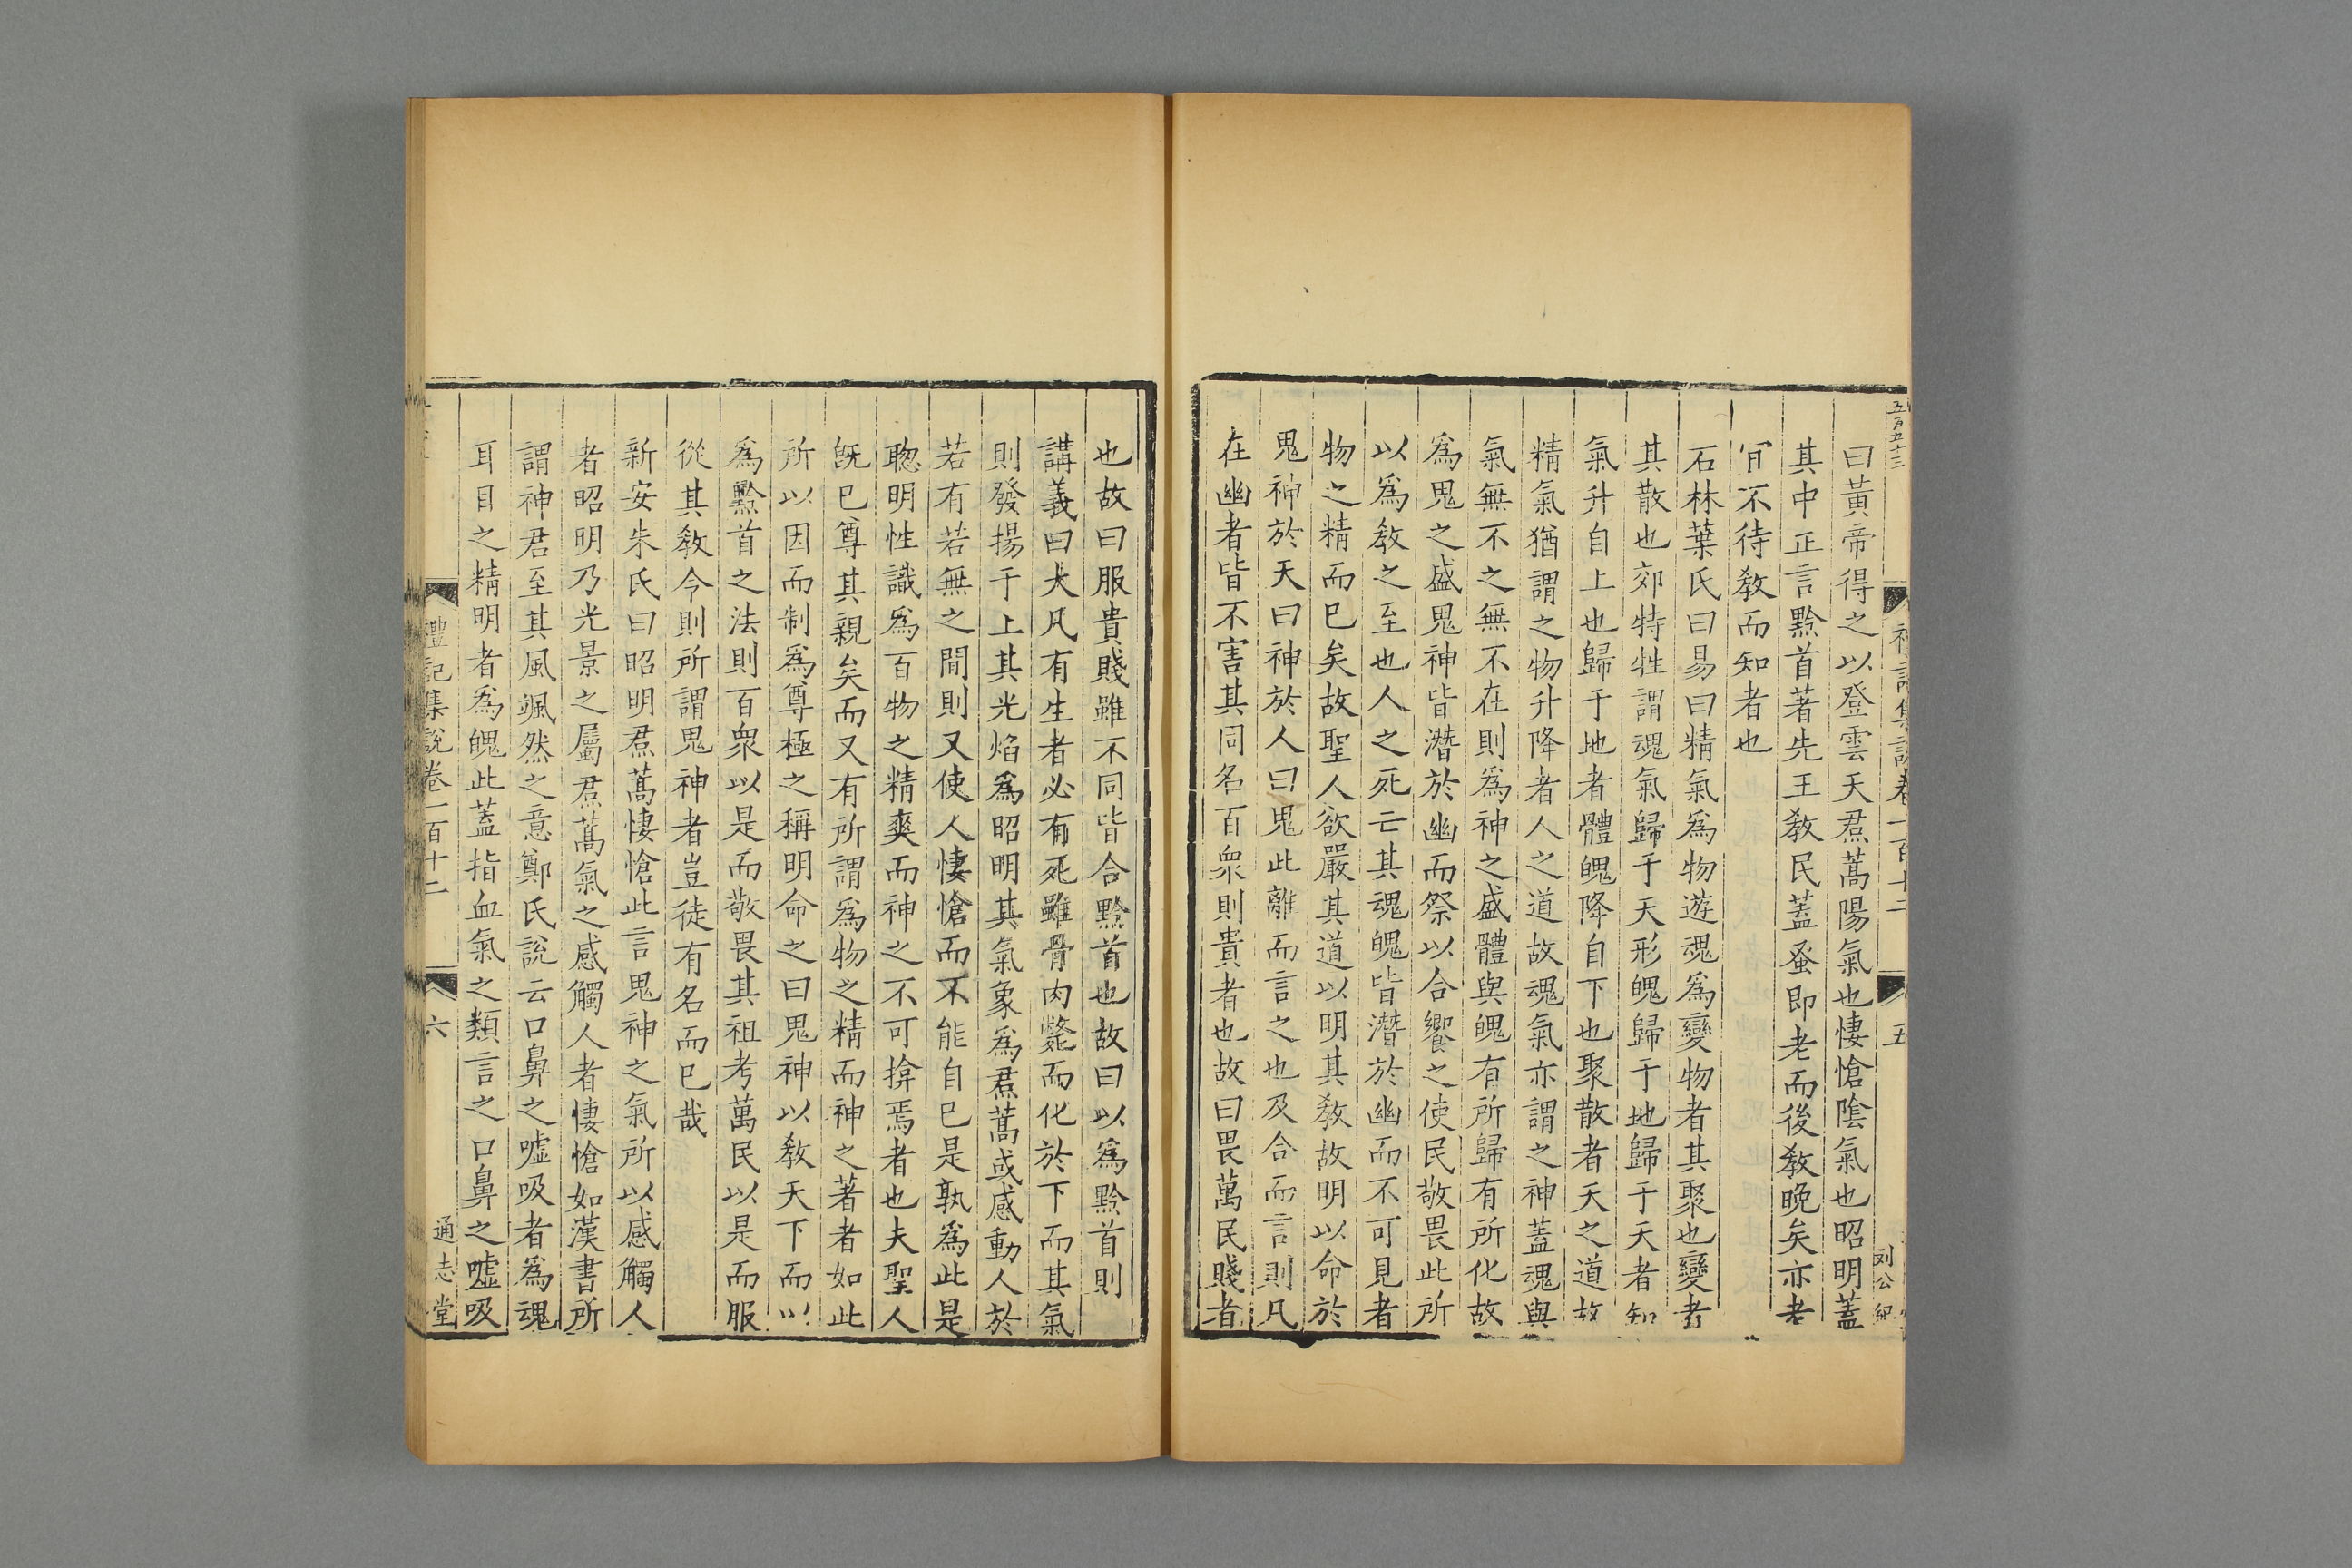 五百五十三
禮記集說卷一百十二
五
刘公紀
曰黃帝得之以登雲天焄蒿陽氣也悽愴陰氣也昭明蓋
其中正言黔首著先王敎民蓋蚤即老而後敎晚矣亦老
有不待敎而知者也
石林葉氏曰易曰精氣爲物遊魂爲變物者其聚也變者
其散也郊特牲謂魂氣歸于天形魄歸于地歸于天者知
氣升自上也歸于地者體魄降自下也聚散者天之道故
精氣猶謂之物升降者人之道故魂氣亦謂之神蓋魂與
氣無不之無不在則爲神之盛體與魄有所歸有所化故
爲鬼之盛鬼神皆潛於幽而祭以合饗之使民敬畏此所
以爲敎之至也人之死亡其魂魄皆潛於幽而不可見者
物之精而已矣故聖人欲嚴其道以明其敎故明以命於
鬼神於天曰神於人曰鬼此離而言之也及合而言則凡
在幽者皆不害其同名百衆則貴者也故曰畏萬民賤者
也故曰服貴賤雖不同皆合黔首也故曰以爲黔首則
講義曰大凡有生者必有死雖骨肉斃而化於下而其氣
則發揚于上其光焰爲昭明其氣象爲焄蒿或感動人於
若有若無之間則又使人悽愴而不能自已是孰爲此是
聰明性識爲百物之精爽而神之不可揜焉者也夫聖人
旣已尊其親矣而又有所謂爲物之精而神之著者如此
所以因而制爲尊極之稱明命之曰鬼神以敎天下而以
爲黔首之法則百衆以是而敬畏其祖考萬民以是而服
從其敎令則所謂鬼神者豈徒有名而已哉
新安朱氏曰昭明焄蒿悽愴此言鬼神之氣所以感觸人
者昭明乃光景之屬焄蒿氣之感觸人者悽愴如漢書所
謂神君至其風颯然之意鄭氏說云口鼻之噓吸者爲魂
耳目之精明者爲魄此蓋指血氣之類言之口鼻之噓吸
禮記集說卷一百十二
六
通志堂